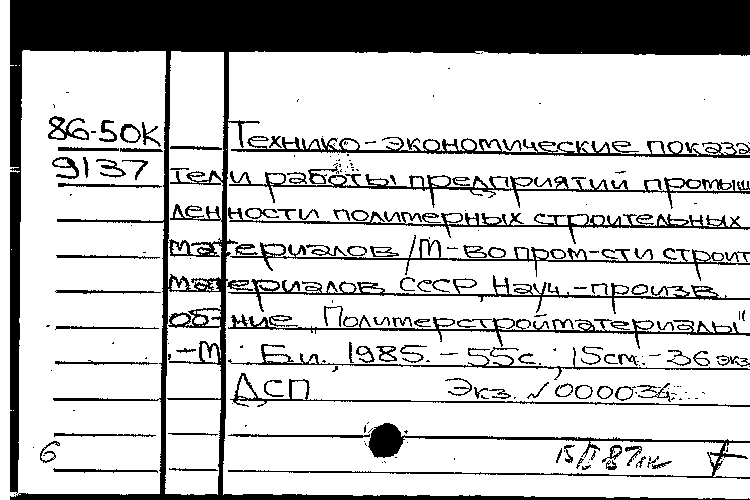 86-50К
9137
Технико-экономические показа
тели работы предприятий промыш
ленности полимерных строительных
материалов /М-во пром-сти строит
материалов СССР, Науч.-произв.
об-ние „Полимерстройматериалы"
.-М.: Б.и., 1985.-55с.; 15см.-36экз
ДСП Экз. №000034
6